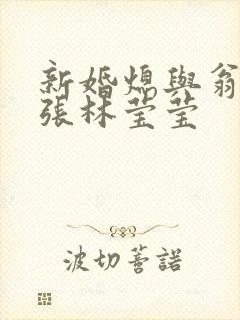 新婚熄與翁
張林莹莹
波切蒈諾